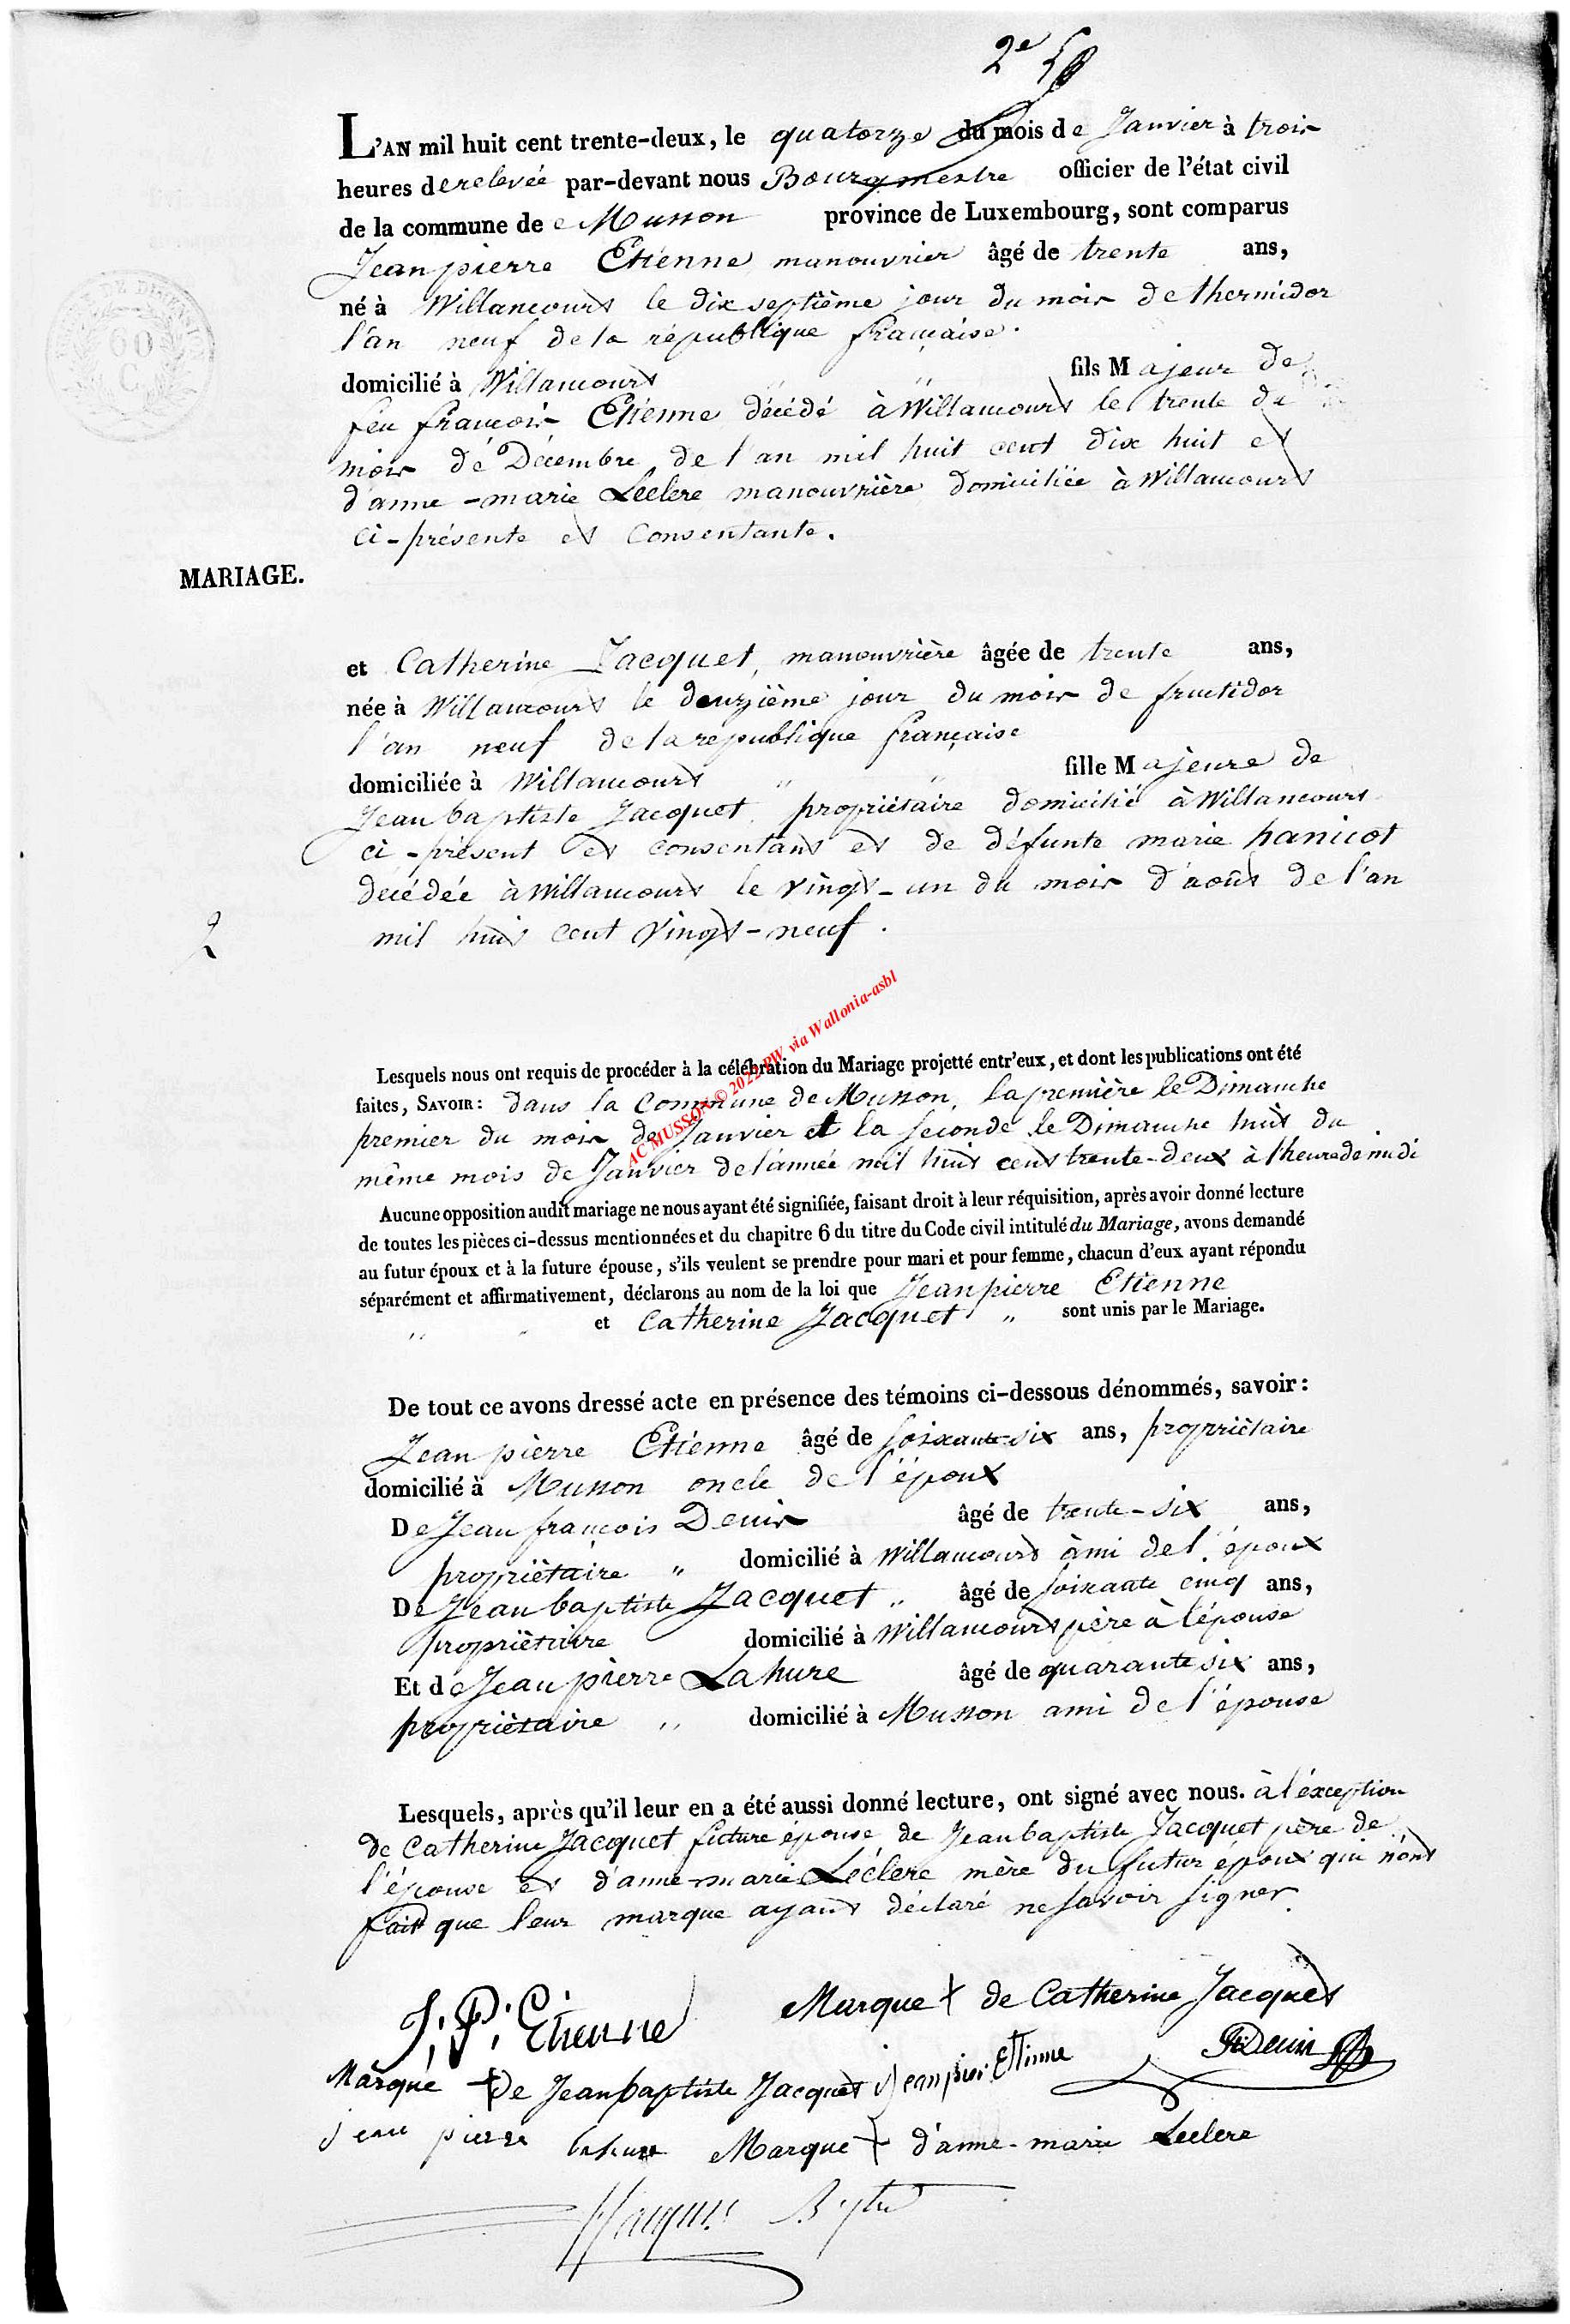 2e
L'AN mil huit cent trente-deux, le quatorze du mois de Janvier à trois
heures de relevée par-devant nous Bourgmestre officier de l'état civil
de la commune de Musson province de Luxembourg, sont comparus
Jean pierre Etienne manouvrier âgé de trente ans,
né à Willancourt le dix septième jour du mois de thermidor
l'an neuf de la république française.
domicilié à Willancourt " fils Majeur de
feu françois Etienne décédé à Willancourt le trente du
mois de Décembre de l'an mil huit cent dix huit et
d'anne-marie Leclere manouvrière domiciliée à Willancourt
ci-présente et Consentante.
MARIAGE.
et Catherine Jacquet, manouvrière âgée de trente ans,
née à Willancourt le deuzième jour du mois de fructidor
l'an neuf de la république française
domiciliée à Willancourt " " fille Majeure de
Jean baptiste Jacquet, propriétaire domicilié à Willancourt
ci-présent et consentant et de défunte marie hanicot
décédée à Willancourt le vingt-un du mois d'août de l'an
2 mil huit cent vingt-neuf.
Lesquels nous ont requis de procéder à la célébration du Mariage projetté entr'eux, et dont les publications ont été
faites, SAVOIR: dans la Commune de Musson, la première le Dimanche
premier du mois de Janvier et la seconde le Dimanche huit du
même mois de Janvier de l'année mil huit cent trente-deux à l'heure de midi
AC MUSSON © 2022 PW via Wallonia-asbl
Aucune opposition audit mariage ne nous ayant été signifiée, faisant droit à leur réquisition, après avoir donné lecture
de toutes les pièces ci-dessus mentionnées et du chapitre 6 du titre du Code civil intitulé du Mariage, avons demandé
au futur époux et à la future épouse, s'ils veulent se prendre pour mari et pour femme, chacun d'eux ayant répondu
séparément et affirmativement, déclarons au nom de la loi que Jean pierre Etienne
" " et Catherine Jacquet " sont unis par le Mariage.
De tout ce avons dressé acte en présence des témoins ci-dessous dénommés, savoir:
Jean pierre Etienne âgé de soixante-six ans, propriétaire
domicilié à Musson oncle de l'époux
De Jean françois Denis âgé de trente-six ans,
propriétaire " domicilié à Willancourt ami de l'époux
De Jean baptiste Jacquet " âgé de soixante cinq ans,
propriétaire domicilié à Willancourt père à l'épouse
Et de Jean pierre Lahure âgé de quarante six ans,
propriétaire " domicilié à Musson ami de l'épouse
Lesquels, après qu'il leur en a été aussi donné lecture, ont signé avec nous. à l'éxception
de Catherine Jacquet future épouse de Jean baptiste Jacquet père de
l'épouse et d'anne-marie Léclere mère du futur époux qui n'ont
fait que leur marque ayant déclaré ne savoir signer.
J. P. Etienne Marque + de Catherine Jacquet
Marque + de Jean baptiste Jacquet Jean pier Etienne Denis
jean pierre lahure Marque + d'anne-marie Leclere